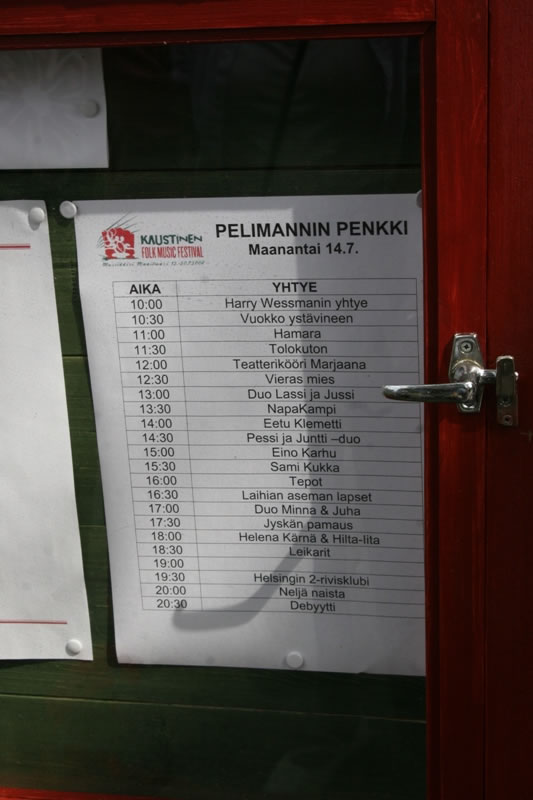 KAUSTINEN
FOLK MUSIC FESTIVAL
PELIMANNIN PENKKI
Maanantai 14.7.
AIKA YHTYE
10:00 Harry Wessmanin yhtye
10:30 Vuokko ystävineen
11:00 Hamara
11:30 Tolokuton
12:00 Teatterikööri Marjaana
12:30 Vieras mies
13:00 Duo Lassi ja Jussi
13:30 NapaKampi
14:00 Eetu Klemetti
14:30 Pessi ja Juntti –duo
15:00 Eino Karhu
15:30 Sami Kukka
16:00 Tepot
16:30 Laihian aseman lapset
17:00 Duo Minna & Juha
17:30 Jyskän pamaus
18:00 Helena Kärnä & Hilta-Iita
18:30 Leikarit
19:00
19:30 Helsingin 2-rivisklubi
20:00 Neljä naista
20:30 Debyytti